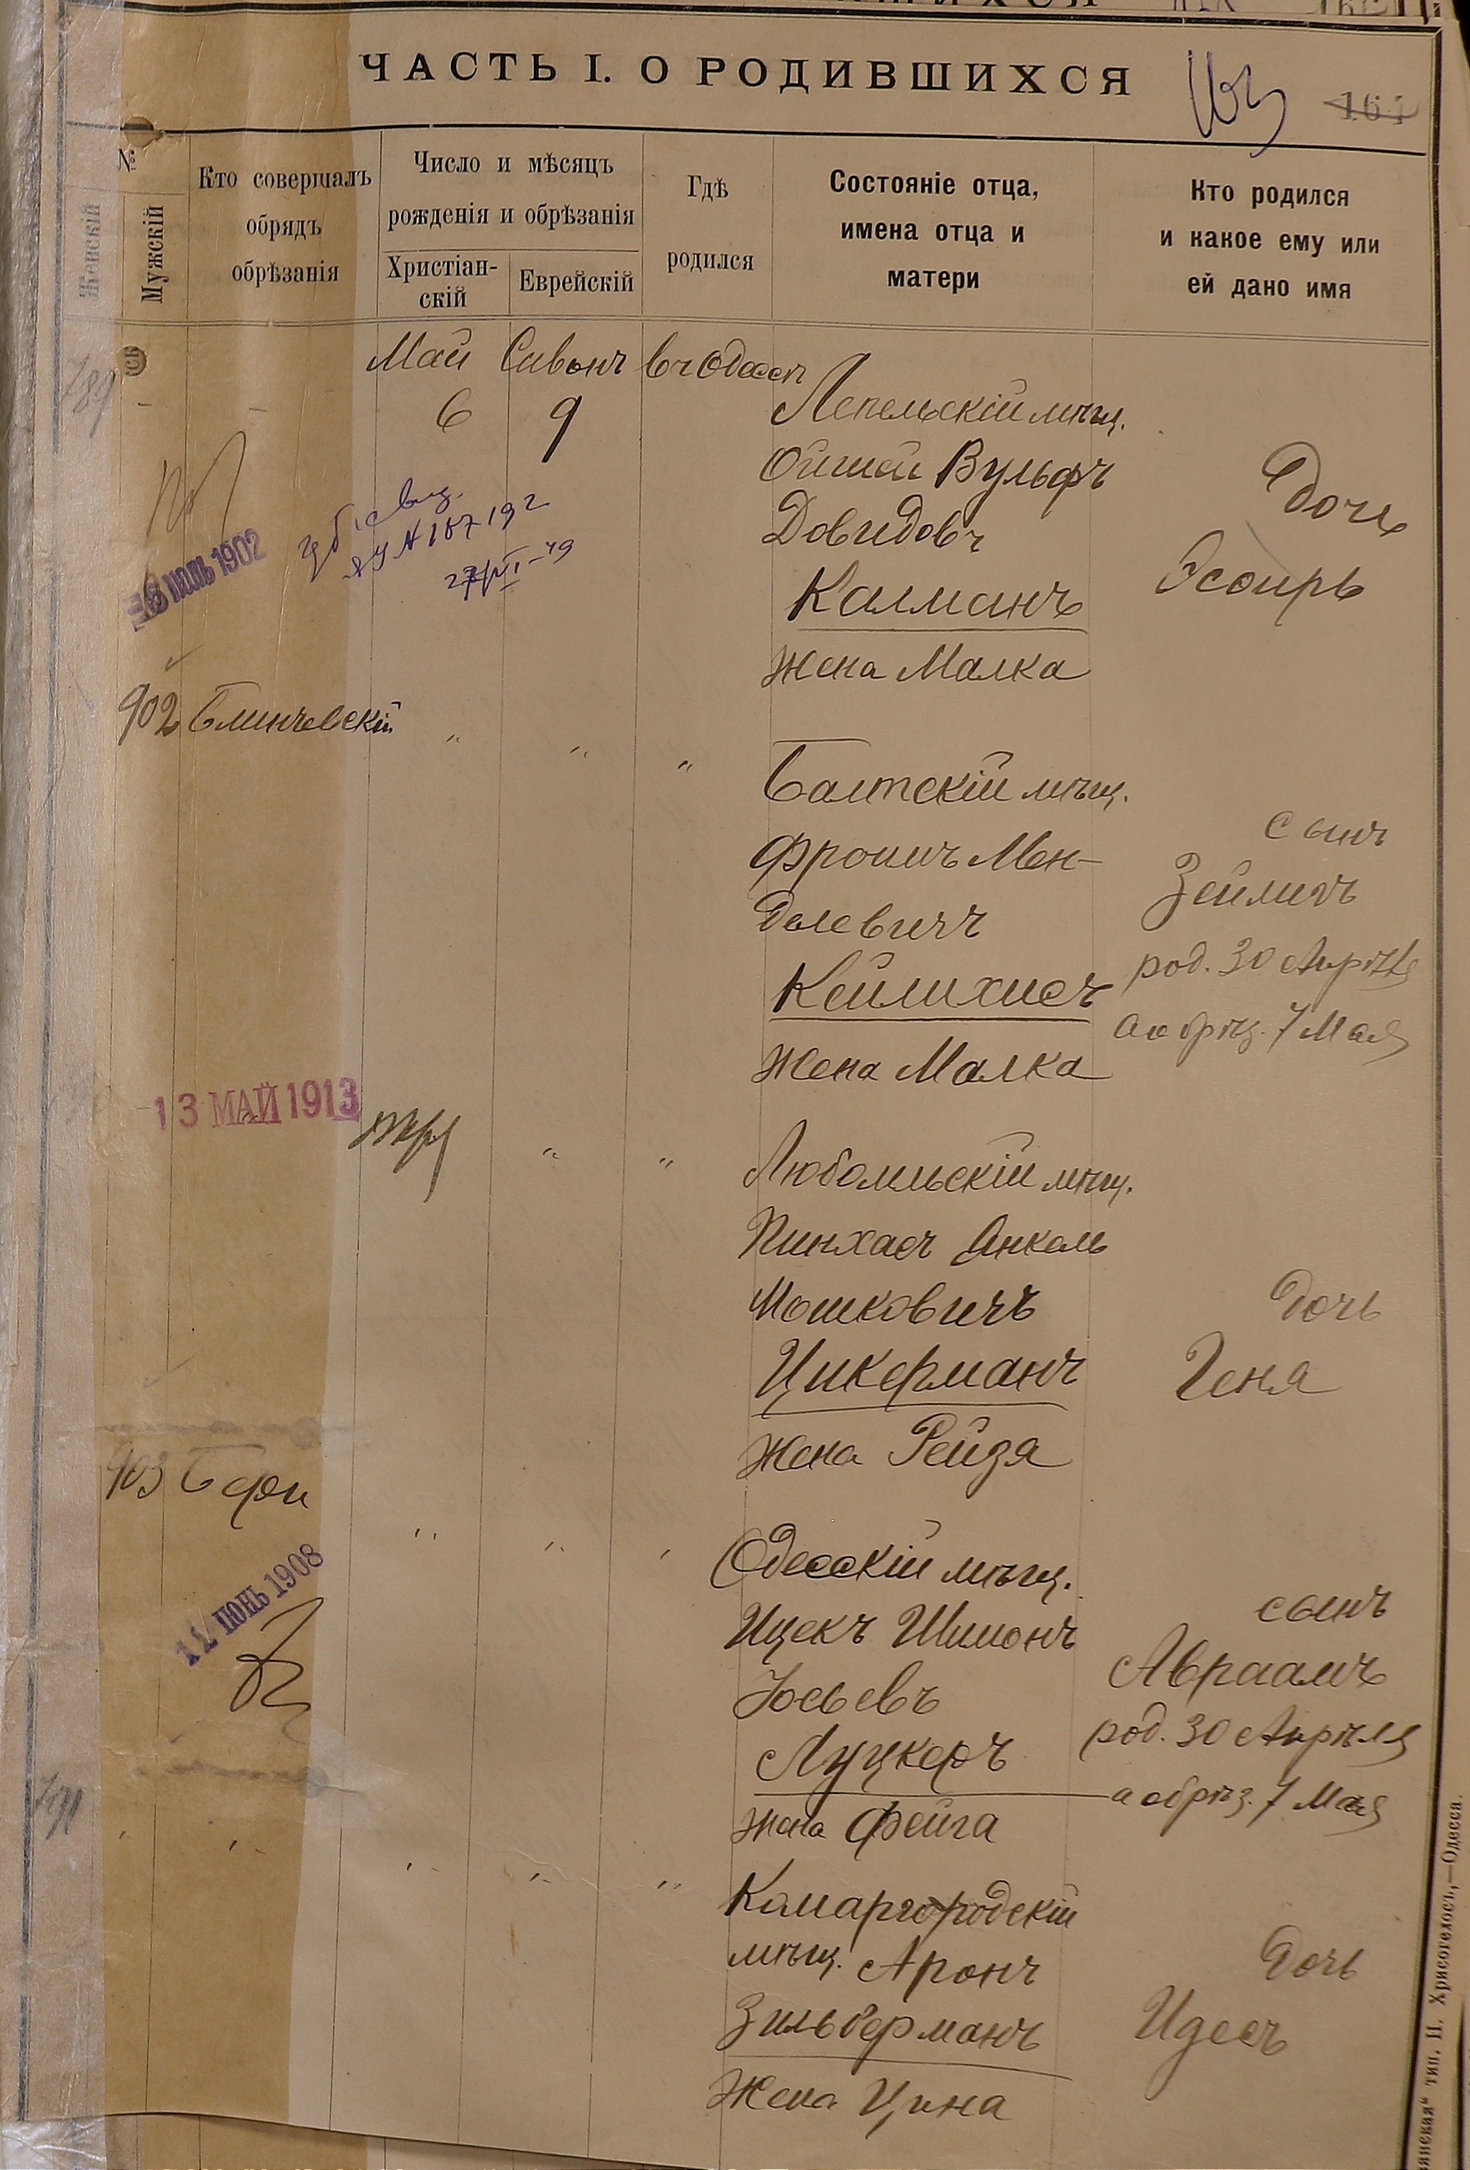 ЧАСТЬ I. О РОДИВШИХСЯ
163
164
№
Женскій
Мужскій
Кто совершалъ
обрядъ
обрѣзанія
Число и мѣсяцъ
рожденія и обрѣзанія
Христіан-
скій
Еврейскій
Гдѣ
родился
Состояніе отца,
имена отца и
матери
Кто родился
и какое ему или
ей дано имя
789
Май Сивонъ въ Одессѣ
6 9
Лепельскій мѣщ.
Вульфъ
Довидовъ
Калманъ
Жена Малка
Дочь
Эсѳирь
1902
27/VI-49
902 Блинчевскій " " "
Балтскій мѣщ.
Фроимъ Мен-
делевичъ
Кейлихисъ
Жена Малка
сынъ
Зейлигъ
род. 30 Апрѣля
а обрѣз. 7 Мая
13 МАЙ 1913
" "
Любомльскій мѣщ.
Пинхасъ Янкель
Мошковичъ
Цикерманъ
Жена Рейзя
дочь
Геня
903
" " "
12 ІЮНЬ 1908
Одесскій мѣщ.
Ицекъ Шимонъ
Іосьевъ
Луцкеръ
Жена Фейга
сынъ
Авраамъ
род. 30 Апрѣля
а обрѣз. 7 Мая
791 " " " " "
Комаргородскій
мѣщ. Аронъ
Зильберманъ
Жена Цина
дочь
Идесъ
тип. Н. Хрисогелосъ,—Одесса.